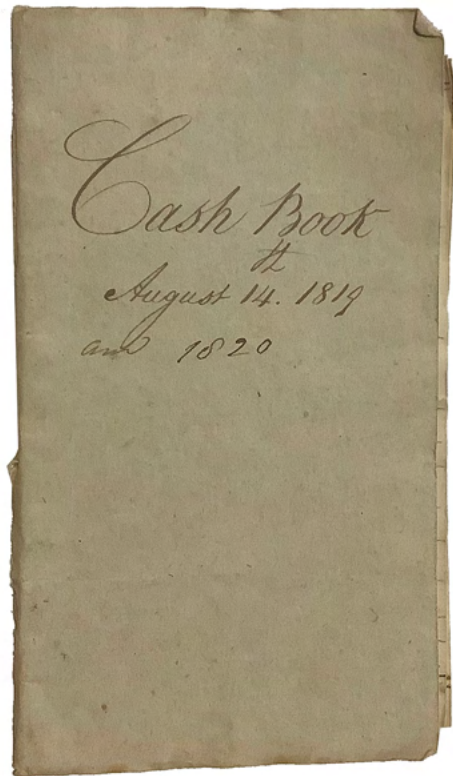 Cash Book
August 14. 1819
and 1820